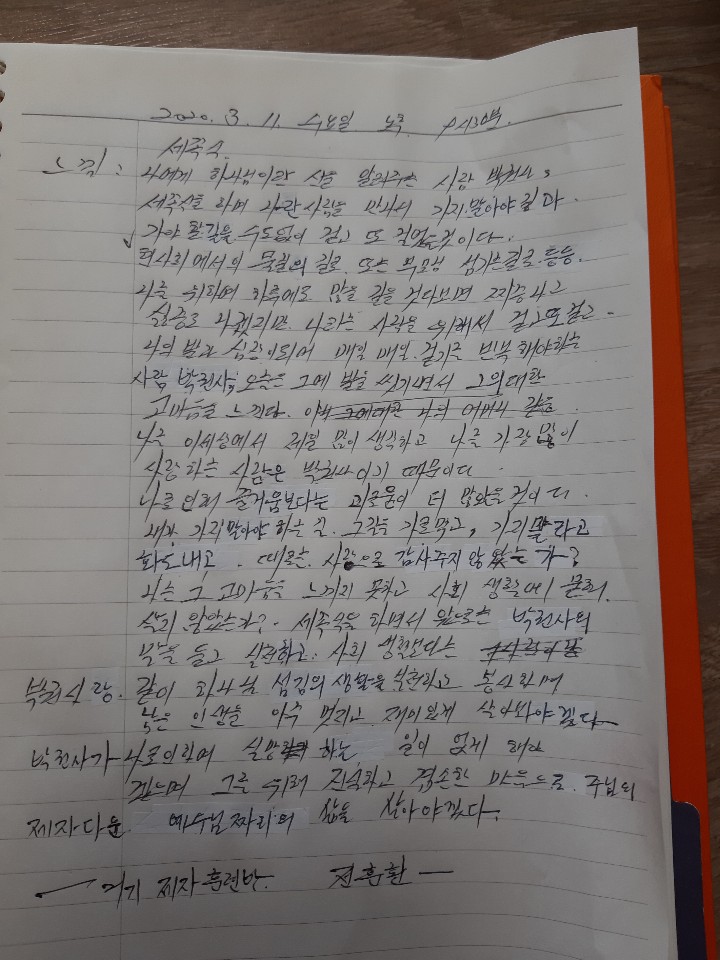 2020. 3. 11. 수요일
세족식.
느낌: 나에게 하나님이란 신을 알려주는 사람 박천사
세족식을 하며 사람을 만나서 가지 말아야 될 다
가야 할 길을 수도 없이 걷고 또 걸었을것이다.
현사회에서의 물질의 길로 또는 부모님 섬기는 길로 등등.
나를 위하여 하루에도 많은 길을 걷다보면 짜증나고
실증도 나겠지만 나라는 사람을 위해서 걷고 또 걷는
나의 발과 심장이 되어 매일 매일 걷기를 반복 해야하는
사람 박천사, 오늘은 그에 발을 씻기면서 그의 대한
고마움을 느낀다. 나의 어머니 같은
나를 이세상에서 제일 많이 생각하고 나를 가장 많이
사랑하는 사람은 박천사이기 때문이다.
나로 인해 즐거움보다는 괴로움이 더 많았을 것이다.
내가 가지 말아야 하는 길. 그길을 가로막고, 가지말라고
화도내고. 때로는 사랑으로 감싸주지 않았는가?
나는 그 고마움을 느끼지 못하고 사회 생활에 묻혀
살지 않았는가? 세족식을 하면서 앞으로는 박천사의
말을 듣고 실천하고. 사회 생활보다는
같이 하나님 섬김의 생활을 실천하고 봉사하며
남은 인생을 아주 멋지고 재미있게 살아봐야겠다
박천사가 나로의하여 실망 하는 일이 없게 해야
겠으며 그를 위해 진실하고 겸손한 마음으로. 주님의
제자다운 예수님짜리의 삶을 살아야겠다.
제자훈련반. 전훈환